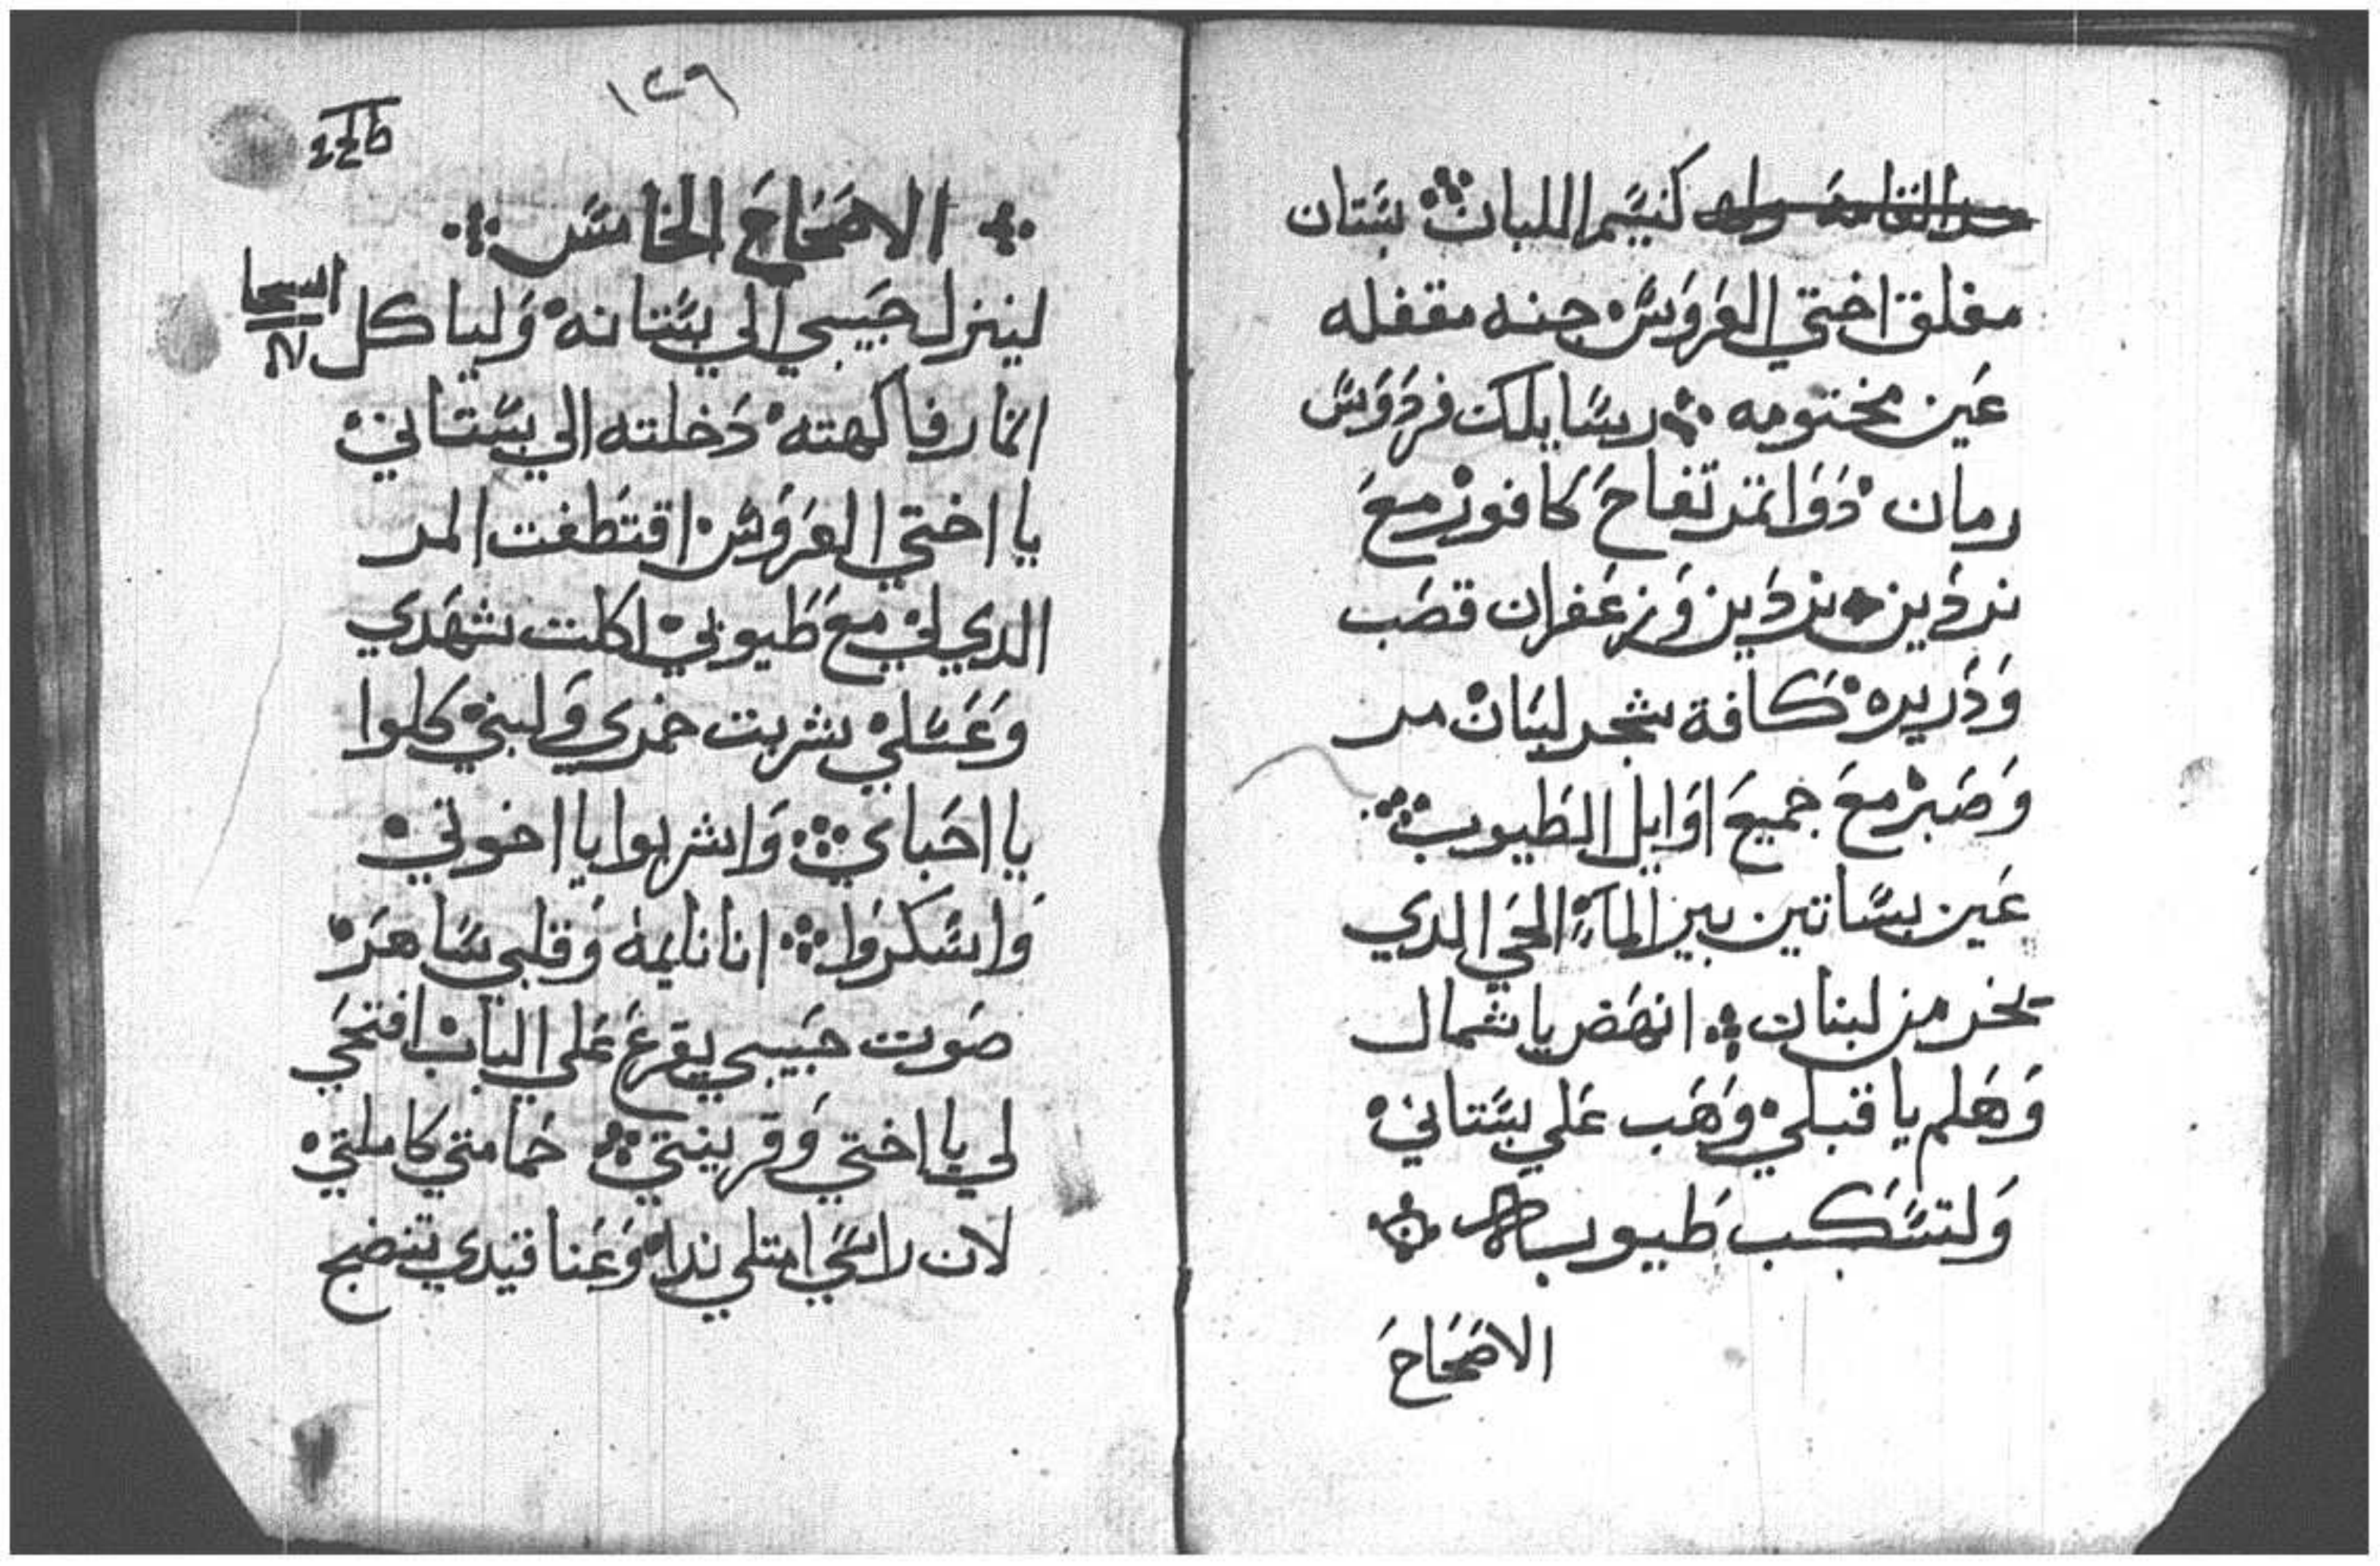 كنسيم اللبان بستان
مغلق اختي العروس جنه مقفله
عين مختومه رسايلك فردوس
رمان دوا تمر تفاح كافور مع
نردين نردين وزعفران قصب
وذريره كافة شجر لبنان مر
وصبر مع جميع اوايل الطيوب
عين بساتين بير المآء الحي الدي
يخر من لبنان انهض يا شمال
وهلم يا قبلي وهب علي بستاني
ولتسكب طيوب
الاصحاح
١٢٩
الاصحاح الخامس
لينزل حبيبي الي بستانه ولياكل
اثمار فاكهته دخلته الي بستاني
يا اختي العروس اقتطفت المر
الدي لي مع طيوبي اكلت شهدي
وعسلي شربت خمري ولبني كلوا
يا احباي واشربوا يا اخوتي
واسكروا انا نايمه وقلبي ساهر
صوت حبيبي يقرع علي الباب افتحي
لي يا اختي وقرينتي حمامتي كاملتي
لان راسي امتلي ندا وعناقيدي تنضح